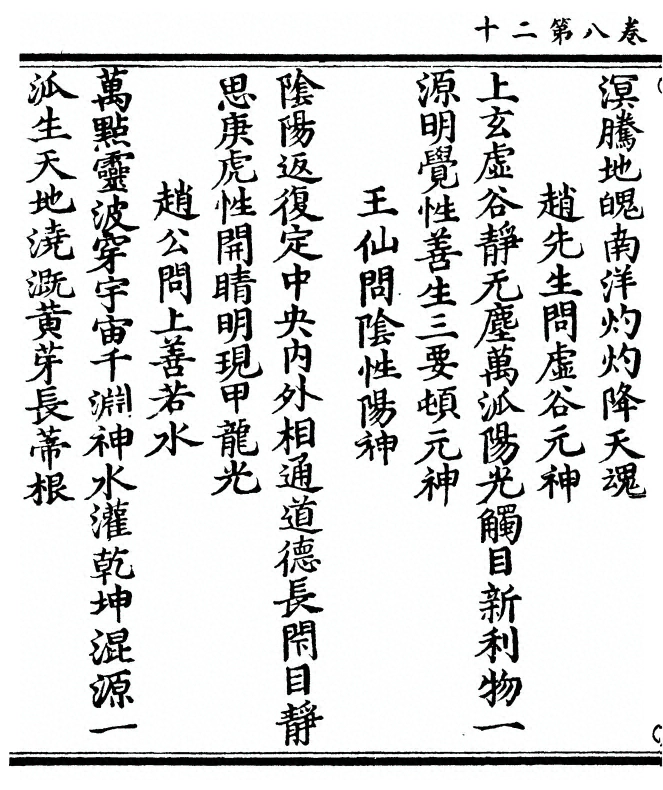 卷八第二十
溟騰地魄南洋灼灼降天魂
趙先生問虛谷元神
上玄虛谷靜无塵萬派陽光觸目新利物一
源明覺性善生三要頓元神
王仙問陰性陽神
陰陽返復定中央內外相通道德長閉目靜
思庚虎性開睛明現甲龍光
趙公問上善若水
萬點靈波穿宇宙千淵神水灌乾坤混源一
派生天地澆溉黃芽長蒂根